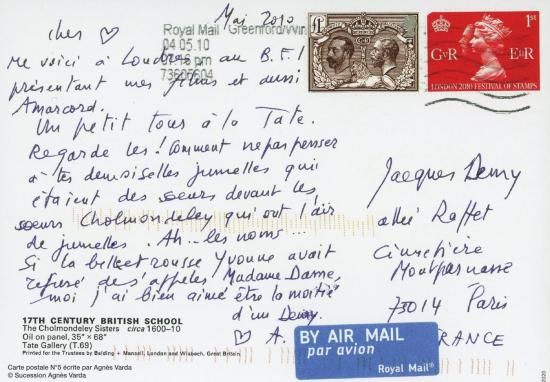 Mai 2010
Royal Mail Greenford/Win
04.05.10
07:16 pm
73605604
£1
1st
GvR EIIR
LONDON 2010 FESTIVAL OF STAMPS
Cher ♡
Me voici à Londres au B.F.I
présentant mes films et aussi
Amarcord.
Un petit tour à la Tate.
Regarde les! Comment ne pas penser
à tes demoiselles jumelles qui
étaient des sœurs devant les
sœurs Cholmondeley qui ont l'air
de jumelles. Ah.. les noms ...
Si la belle et rousse Yvonne avait
refusé de s'appeler Madame Dame,
moi j'ai bien aimé être la moitié
d'un Demy.
♡ A.
Jacques Demy
allée Raffet
Cimetière
Montparnasse
75014 Paris
FRANCE
BY AIR MAIL
par avion
Royal Mail
17TH CENTURY BRITISH SCHOOL
The Cholmondeley Sisters circa 1600–10
Oil on panel, 35" × 68"
Tate Gallery (T.69)
Printed for the Trustees by Balding + Mansell, London and Wisbech, Great Britain
Carte postale N°5 écrite par Agnès Varda
© Sucession Agnès Varda
2020